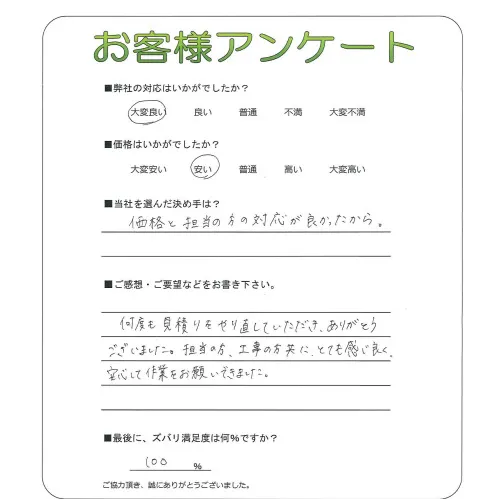 お客様アンケート
■弊社の対応はいかがでしたか？
大変良い 良い 普通 不満 大変不満
■価格はいかがでしたか？
大変安い 安い 普通 高い 大変高い
■当社を選んだ決め手は？
価格と担当の方の対応が良かったから。
■ご感想・ご要望などをお書き下さい。
何度も見積りをやり直していただき、ありがとう
ございました。担当の方、工事の方共に、とても感じ良く、
安心して作業をお願いできました。
■最後に、ズバリ満足度は何%ですか？
100 %
ご協力頂き、誠にありがとうございました。